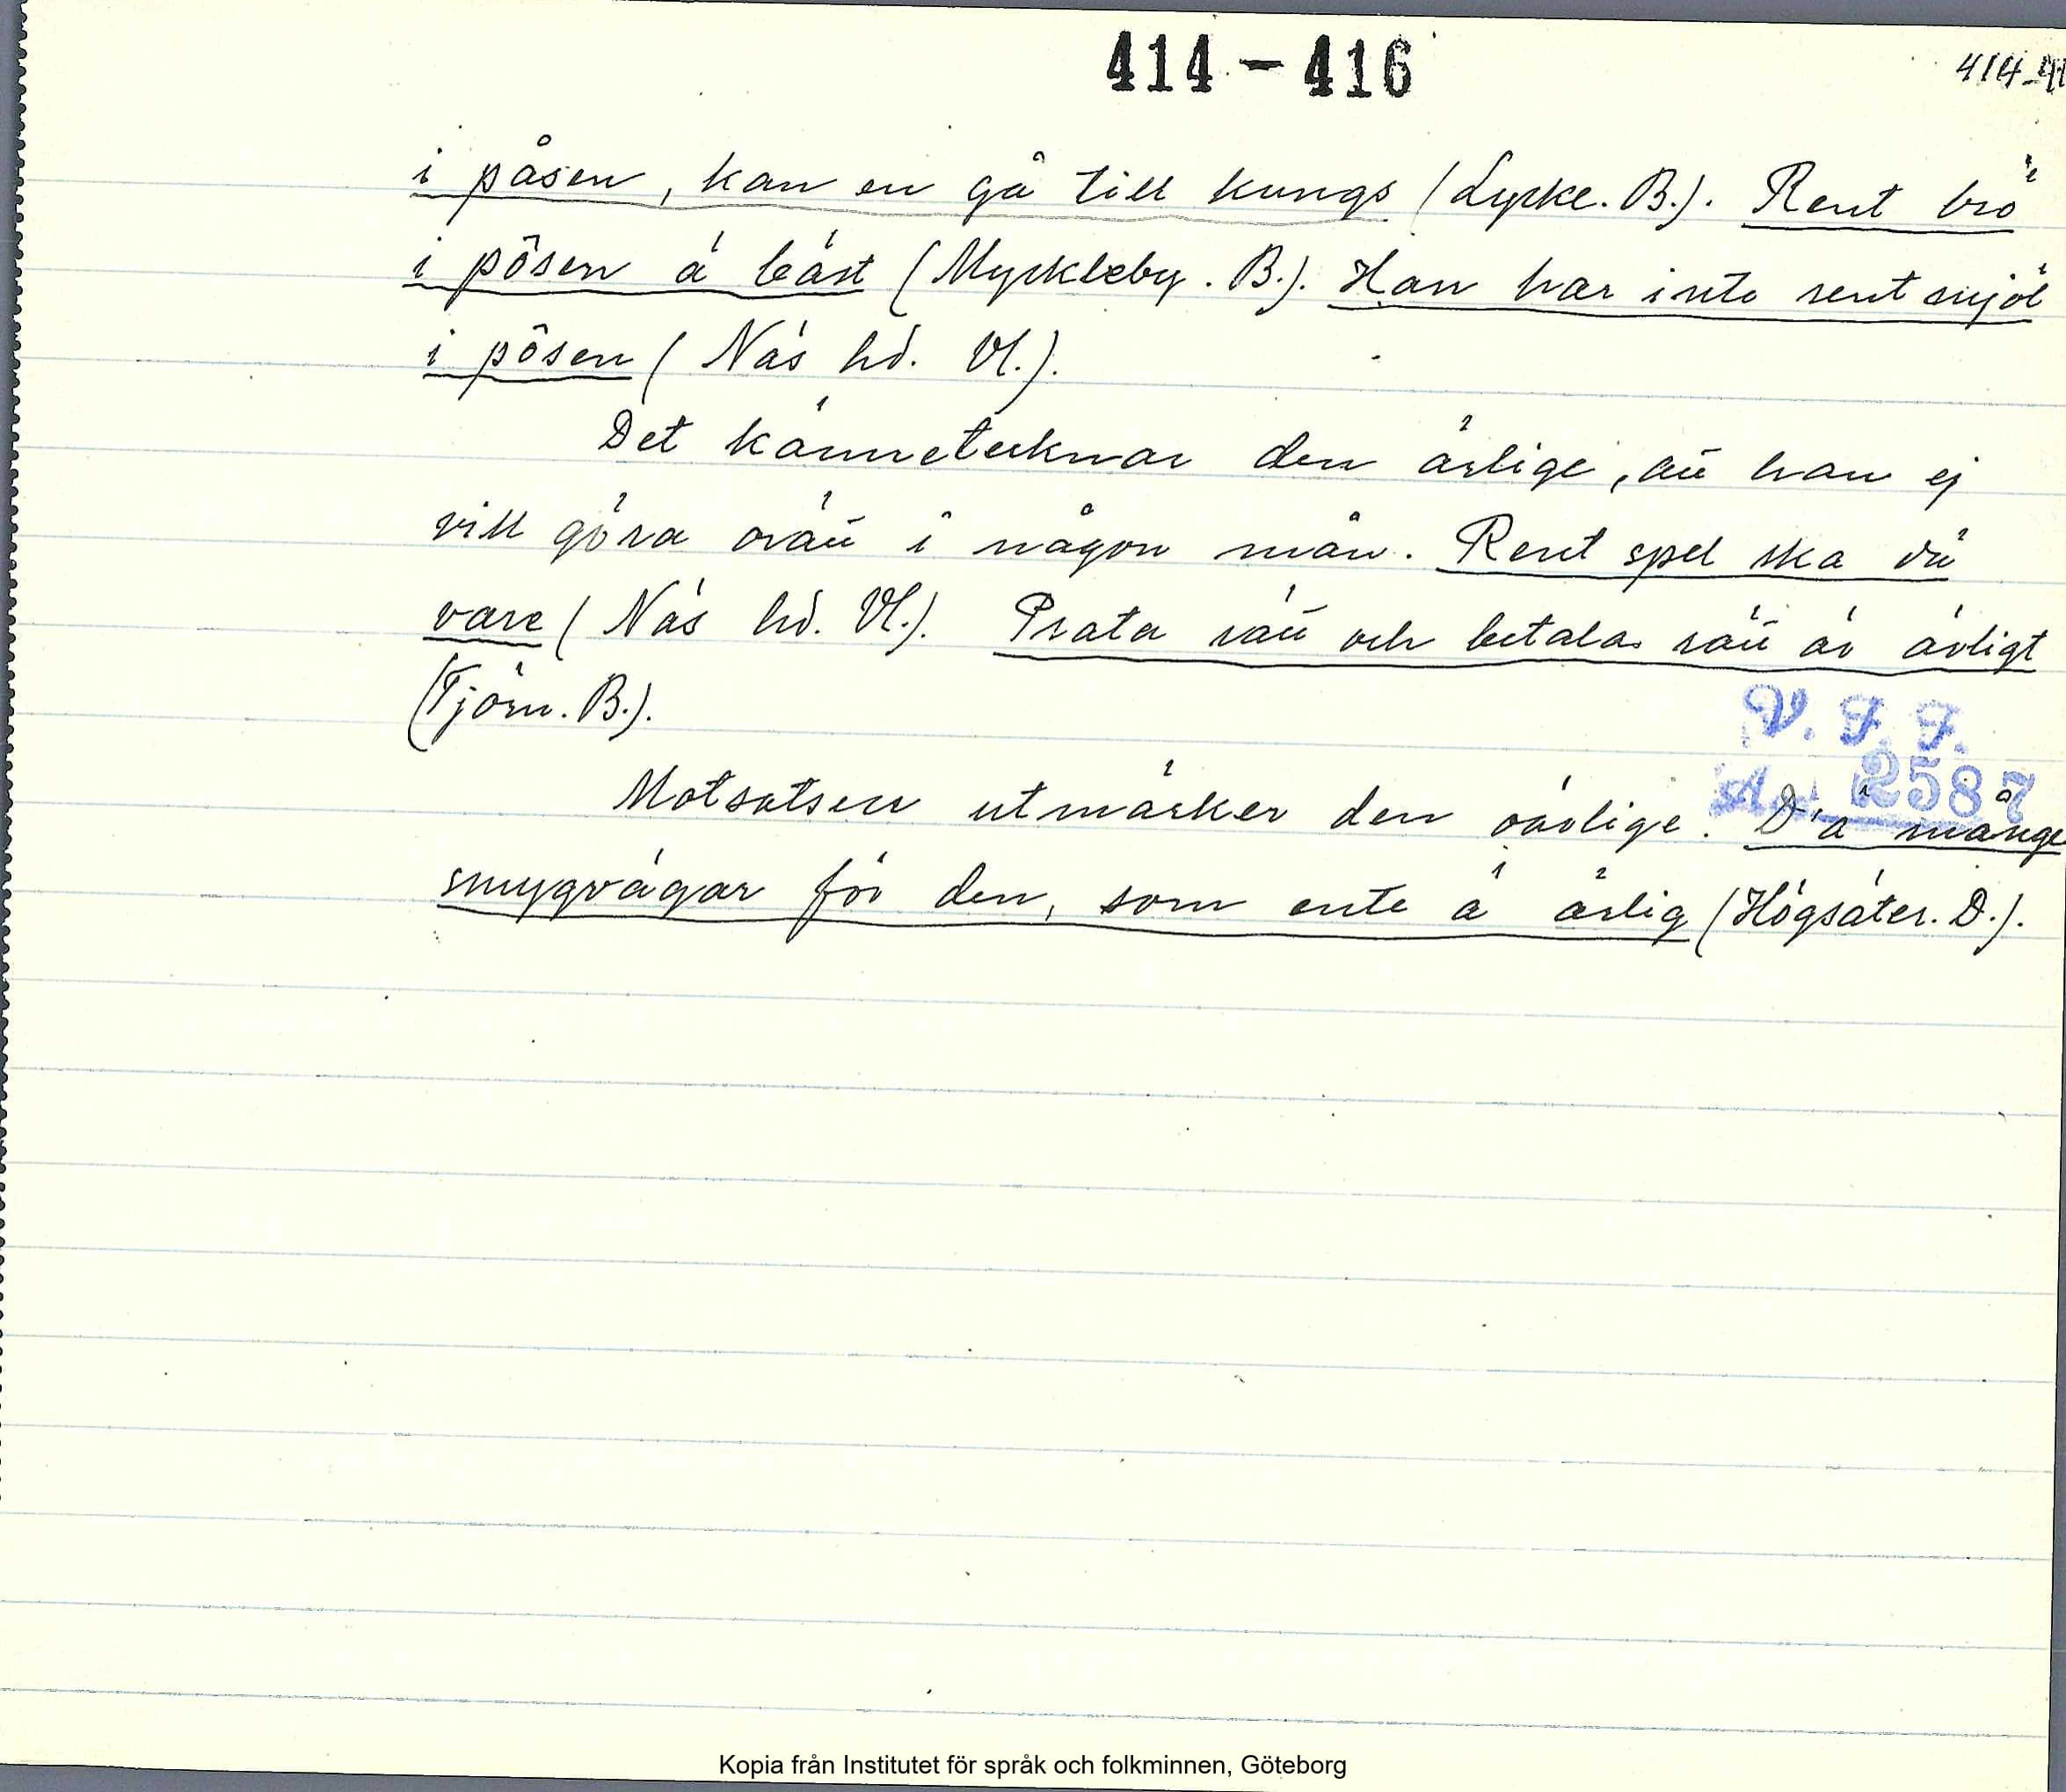 414-416
i påsen, kan en gå till kungs (Lycke. B.). Rent brö
i pôsen ä bäst (Myckleby. B.). Han har inte rent mjöl
i pôsen (Näs hd. Vl.).
Det kännetecknar den ärlige, att han ej
vill göra orätt i någon mån. Rent spel ska dä
vare (Näs hd. Vl.). Prata rätt och betala rätt är ärligt
(Tjörn. B.).
V. F. F.
A. 2587
Motsatsen utmärker den oärlige. D'ä månge
smygvägar för den, som ente ä ärlig (Högsäter. D.).
Kopia från Institutet för språk och folkminnen, Göteborg